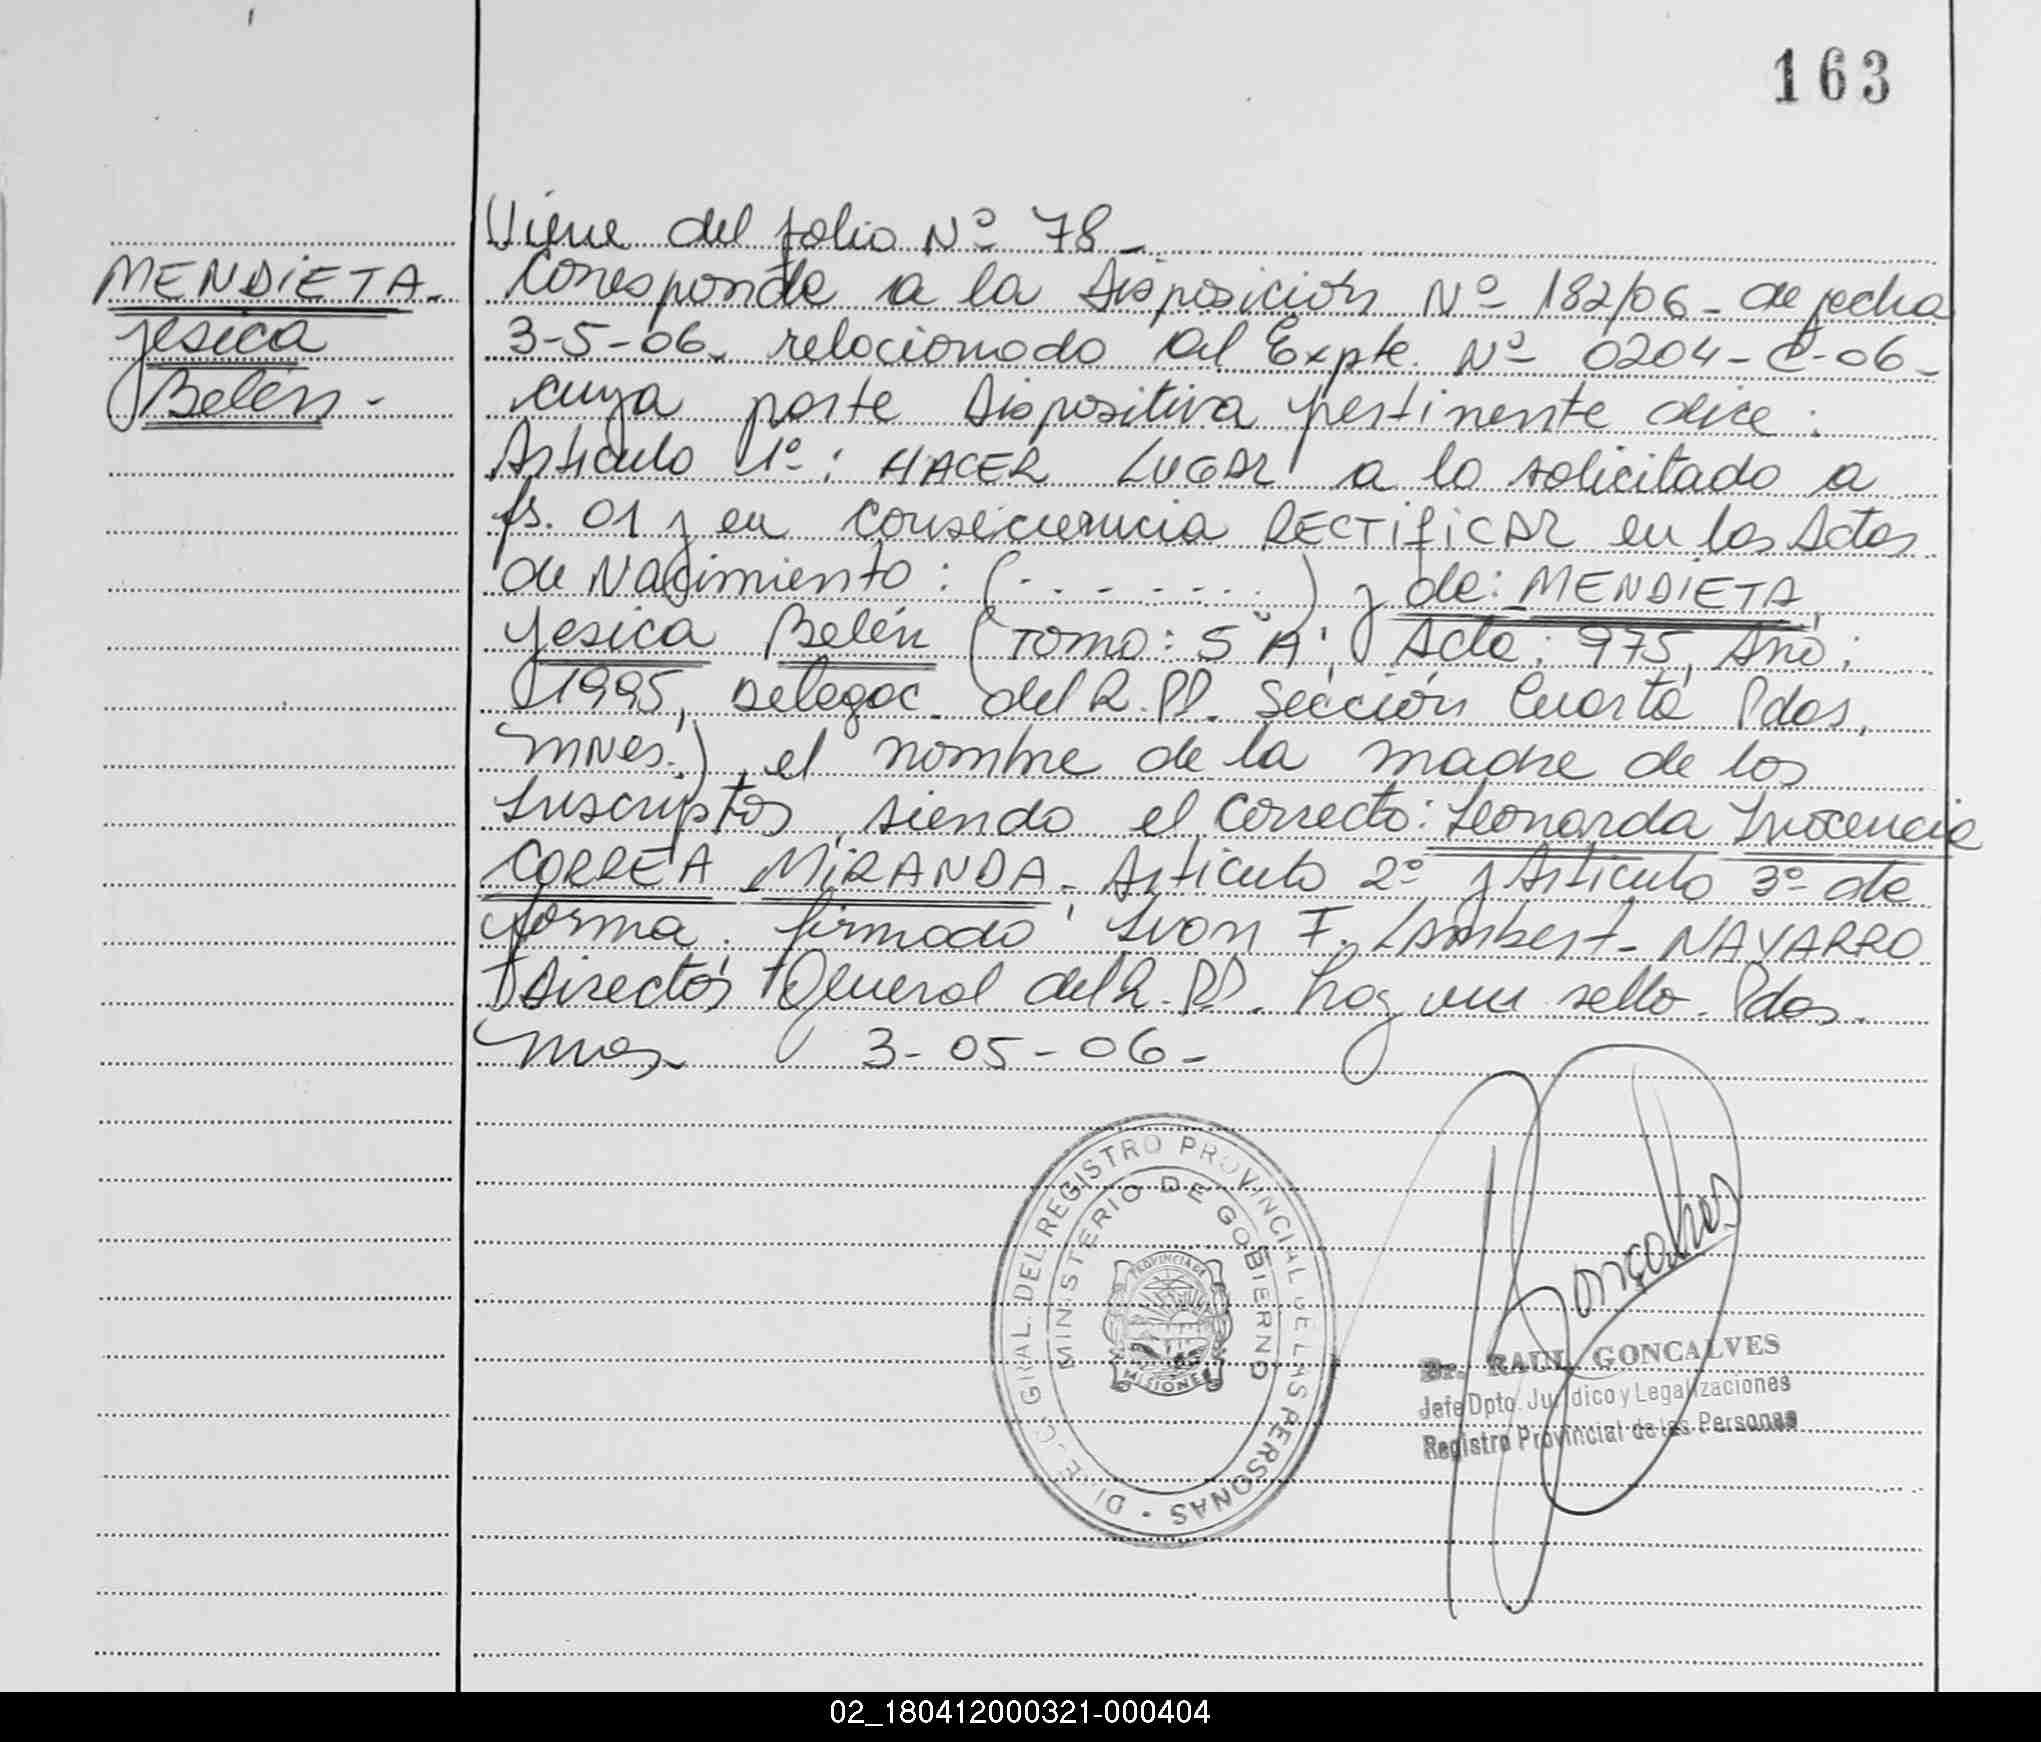 163
Viene del folio Nº 78-
MENDIETA-
Jesica
Belén-
Corresponde a la Disposición Nº 182/06- de fecha
3-5-06- relacionado al Expte. Nº 0204-C-06-
cuya parte Dispositiva pertinente dice:
Artículo 1º: HACER LUGAR a lo solicitado a
fs. 01 y en consecuencia RECTIFICAR en las Actas
de Nacimiento: (. - - - - . . .) y de: MENDIETA,
Jesica Belén (Tomo: 5"A", Acta: 975, Año:
1995, Delegac. del R.PP. Sección Cuarta Pdas,
Mnes.), el nombre de la madre de los
Inscriptos, siendo el correcto: Leonarda Inocencia
CORREA MIRANDA- Artículo 2º y Artículo 3º de
forma. firmado Ivon F. Lambert- NAVARRO
Director General del R.PP. hay un sello. Pdas.
Mnes- 3-05-06-
DIREC. GRAL. DEL REGISTRO PROVINCIAL DE LAS PERSONAS
MINISTERIO DE GOBIERNO
PROVINCIA DE
MISIONES
Gonçalves
Dr. RAUL GONCALVES
Jefe Dpto. Jurídico y Legalizaciones
Registro Provincial de las Personas
02_180412000321-000404